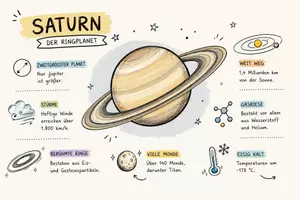 SATURN
DER RINGPLANET
ZWEITGRÖSSTER PLANET
Nur Jupiter
ist größer.
STÜRME
Heftige Winde
erreichen über
1.800 km/h.
BERÜHMTE RINGE
Bestehen aus Eis-
und Gesteinspartikeln.
VIELE MONDE
Über 140 Monde,
darunter Titan.
WEIT WEG
1,4 Milliarden km
von der Sonne.
GASRIESE
Besteht vor allem
aus Wasserstoff
und Helium.
EISIG KALT
Temperaturen um
-178 °C.